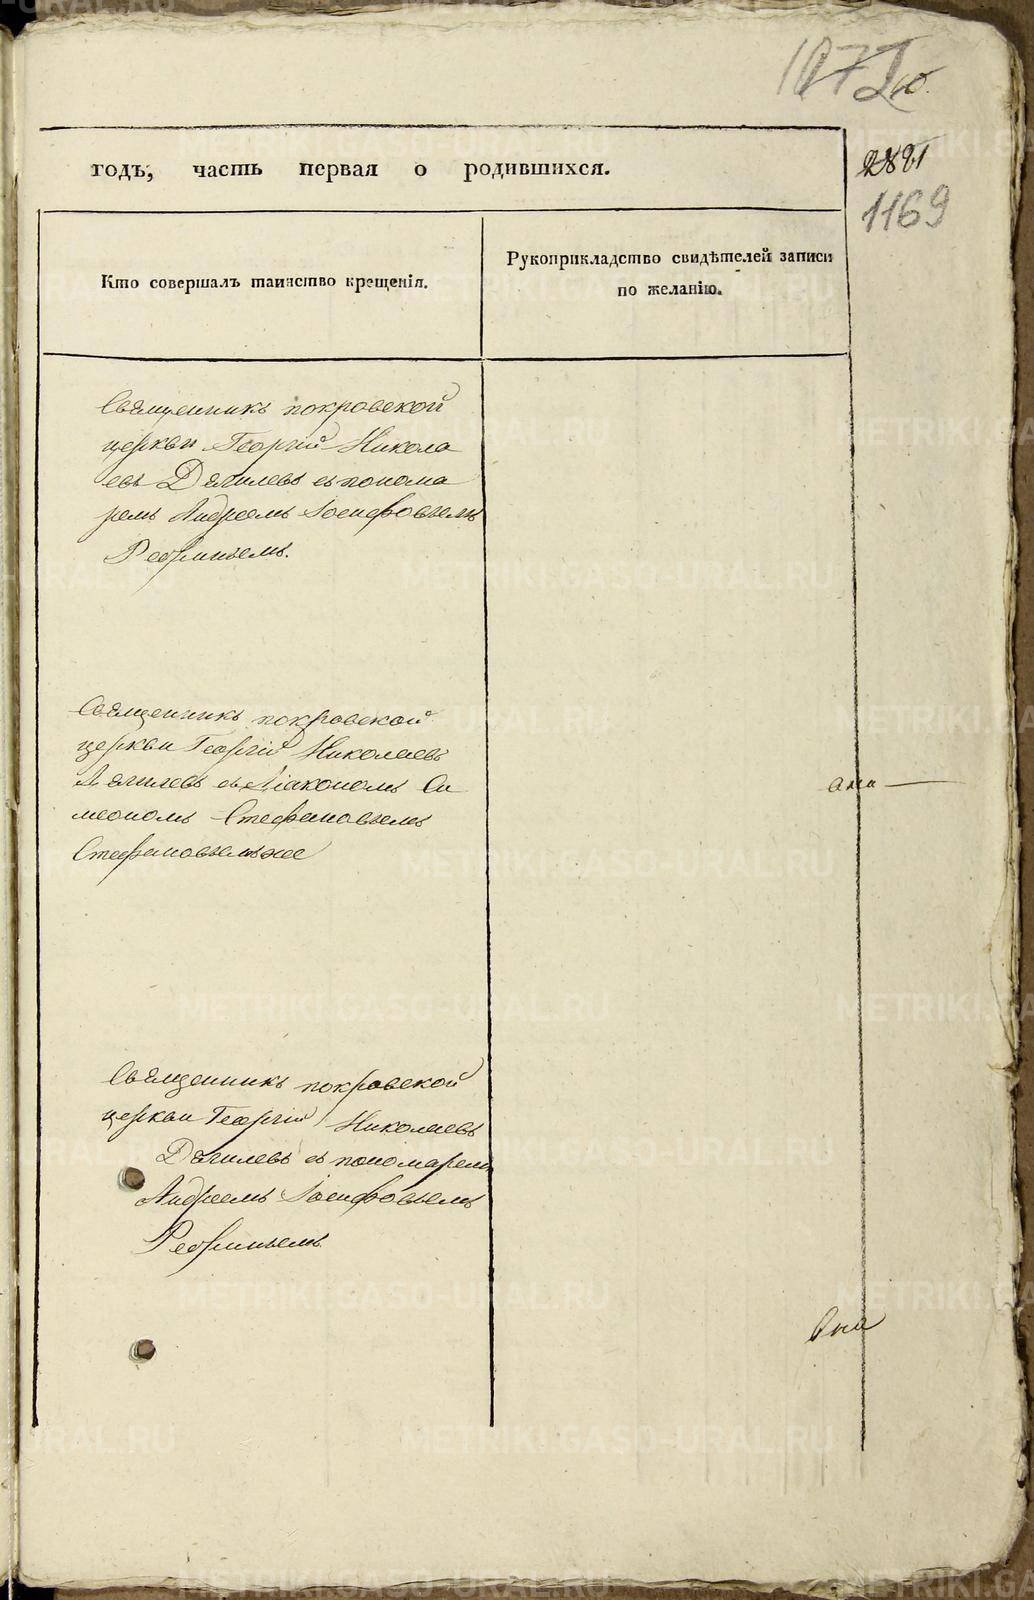 годъ, часть первая о родившихся.
2821
1169
Кто совершалъ таинство крещенія.
Рукоприкладство свидѣтелей записи
по желанію.
Священникъ покровской
церкви Георгій Никола
евъ Дягилевъ съ понома
ремъ Андреемъ Іосифовымъ
Священникъ покровской
церкви Георгій Николаевъ
Дягилевъ съ Діакономъ Си
меономъ Стефановымъ
Стефановымъ же
Священникъ покровской
церкви Георгій Николаевъ
Дягилевъ съ пономаремъ
Андреемъ Іосифовымъ
METRIKI.GASO-URAL.RU